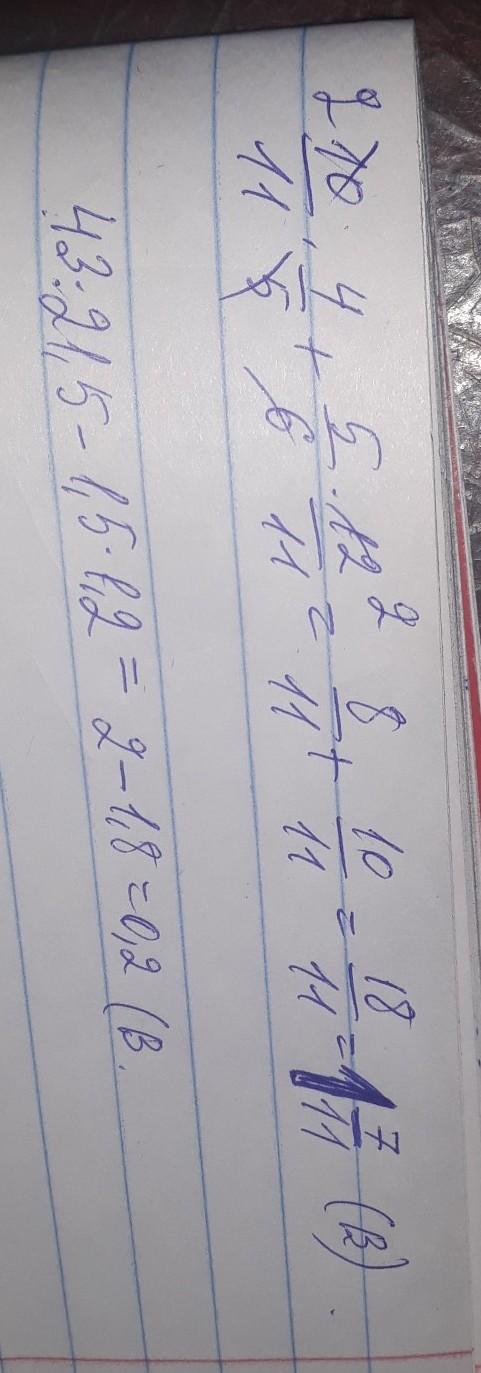 2 10/11 · 4/5 + 5/6 · 12/11 2 = 8/11 + 10/11 = 18/11 = 1 7/11 (В)
43:21,5 - 1,5·1,2 = 2 - 1,8 = 0,2 (В.